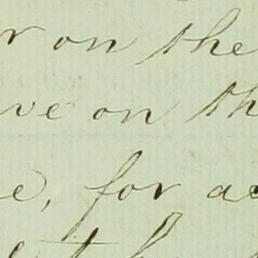 r on the
ve on th
e, for ac